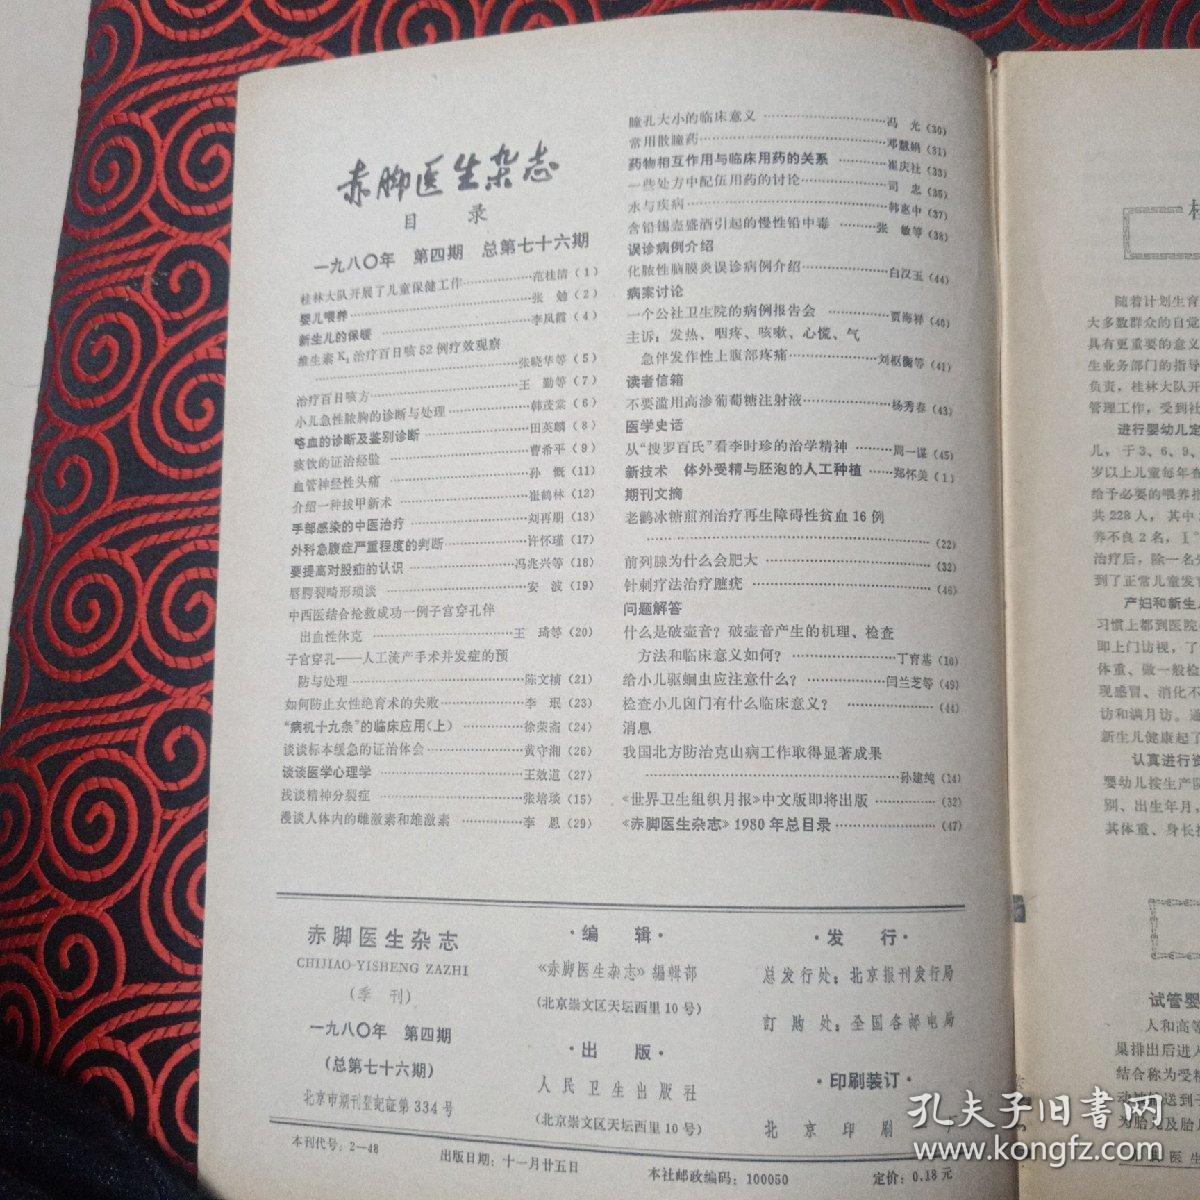 赤脚医生杂志
目 录
一九八〇年 第四期 总第七十六期
桂林大队开展了儿童保健工作……范桂清（1）
婴儿喂养……张 勉（2）
新生儿的保暖……李凤霞（4）
维生素K₁治疗百日咳52例疗效观察
……张晓华等（5）
治疗百日咳方……王 勤等（7）
小儿急性脓胸的诊断与处理……韩茂棠（6）
咯血的诊断及鉴别诊断……田英麟（8）
痰饮的证治经验……曹希平（9）
血管神经性头痛……孙 慨（11）
介绍一种拔甲新术……崔鹤林（12）
手部感染的中医治疗……刘再朋（13）
外科急腹症严重程度的判断……许怀瑾（17）
要提高对股疝的认识……冯兆兴等（18）
唇腭裂畸形琐谈……安 波（19）
中西医结合抢救成功一例子宫穿孔伴
出血性休克……王 琦等（20）
子宫穿孔——人工流产手术并发症的预
防与处理……陈文祯（21）
如何防止女性绝育术的失败……李 珉（23）
“病机十九条”的临床应用（上）……徐荣斋（24）
谈谈标本缓急的证治体会……黄守湘（26）
谈谈医学心理学……王效道（27）
浅谈精神分裂症……张培琰（15）
漫谈人体内的雌激素和雄激素……李 恩（29）
瞳孔大小的临床意义……冯 光（30）
常用散瞳药……邓慧娟（31）
药物相互作用与临床用药的关系……崔庆社（33）
一些处方中配伍用药的讨论……司 忠（35）
水与疾病……韩惠中（37）
含铅锡壶盛酒引起的慢性铅中毒……张 敏等（38）
误诊病例介绍
化脓性脑膜炎误诊病例介绍……白汉玉（44）
病案讨论
一个公社卫生院的病例报告会……贾海祥（40）
主诉：发热、咽疼、咳嗽、心慌、气
急伴发作性上腹部疼痛……刘枢衡等（41）
读者信箱
不要滥用高渗葡萄糖注射液……杨秀春（43）
医学史话
从“搜罗百氏”看李时珍的治学精神……周一谋（45）
新技术 体外受精与胚泡的人工种植……郑怀美（1）
期刊文摘
老鹳冰糖煎剂治疗再生障碍性贫血16例
……（22）
前列腺为什么会肥大……（32）
针刺疗法治疗臆疣……（46）
问题解答
什么是破壶音？破壶音产生的机理、检查
方法和临床意义如何？……丁育基（10）
给小儿驱蛔虫应注意什么？……闫兰芝等（49）
检查小儿囟门有什么临床意义？……（44）
消息
我国北方防治克山病工作取得显著成果
……孙建纯（14）
《世界卫生组织月报》中文版即将出版……（32）
《赤脚医生杂志》1980年总目录……（47）
赤脚医生杂志
CHIJIAO-YISHENG ZAZHI
（季 刊）
一九八〇年 第四期
（总第七十六期）
北京市期刊登记证第334号
·编 辑·
《赤脚医生杂志》编辑部
（北京崇文区天坛西里10号）
·出 版·
人民卫生出版社
（北京崇文区天坛西里10号）
·发 行·
总发行处：北京报刊发行局
订购处：全国各邮电局
·印刷装订·
北京印刷
本刊代号：2—48
出版日期：十一月廿五日
本社邮政编码：100050
定价：0.18元
随着计划生育
大多数群众的自觉
具有更重要的意义
生业务部门的指导
负责，桂林大队开
管理工作，受到社
进行婴幼儿定
儿，于3、6、9、
岁以上儿童每年在
给予必要的喂养指
共228人，其中
养不良2名，I°
治疗后，除一名
到了正常儿童发
产妇和新生
习惯上都到医院
即上门访视，了
体重、做一般检
现感冒、消化不
访和满月访。通
新生儿健康起了
认真进行资
婴幼儿按生产队
别、出生年月、
其体重、身长
试管婴
人和高等
果排出后进入
结合称为受精
动 送到子
为胎儿及胎
医生
孔夫子旧书网
www.kongfz.com